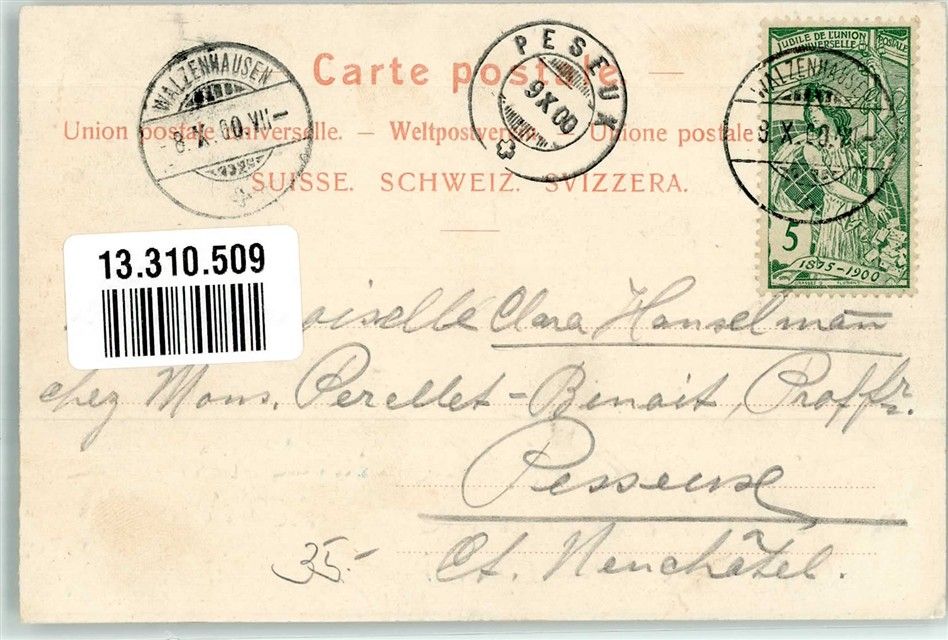 Carte postale
Union postale universelle. — Weltpostverein. — Unione postale
SUISSE. SCHWEIZ. SVIZZERA.
WALZENHAUSEN
8.X.00.VII—
PESEUX
9X00
WALZENHAUSEN
8.X.00.VII—
JUBILÉ DE L'UNION POSTALE
UNIVERSELLE
5
1875-1900
13.310.509
oiselle Clara Hanselmann
chez Mons. Perellet-Benoit, Proffr.
Pesseux
Ct. Neuchâtel.
35.-